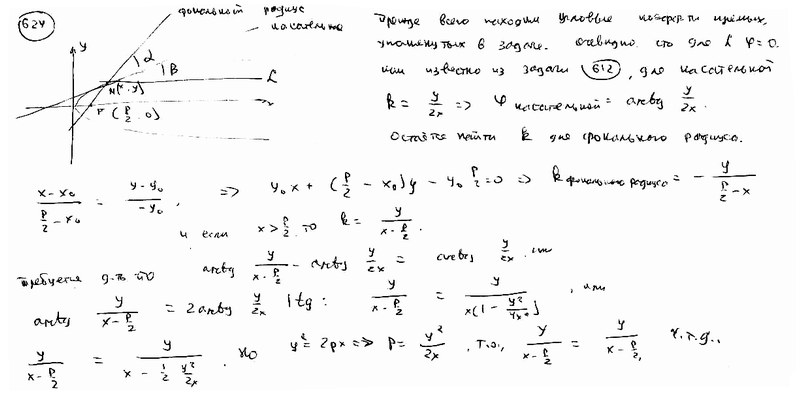 624
фокальный радиус
касательная
y
α
β
L
M(x, y)
F (p/2, 0)
Прежде всего находим угловые коэфф-ты прямых,
упомянутых в задаче. Очевидно, что для L φ = 0.
Как известно из задачи 612, для касательной
k = y/2x => φ касательной = arctg y/2x.
Остаётся найти k для фокального радиуса.
(x - x₀)/(p/2 - x₀) = (y - y₀)/(-y₀), => y₀x + (p/2 - x₀)y - y₀ p/2 = 0 => k фокального радиуса = - y/(p/2 - x)
и если x > p/2, то k = y/(x - p/2).
Требуется д-ть, что arctg y/(x - p/2) - arctg y/2x = arctg y/2x, или
arctg y/(x - p/2) = 2 arctg y/2x | tg: y/(x - p/2) = y/(x(1 - y²/4x²)), или
y/(x - p/2) = y/(x - 1/2 y²/2x). Но y² = 2px => p = y²/2x, т.о., y/(x - p/2) = y/(x - p/2), ч.т.д.